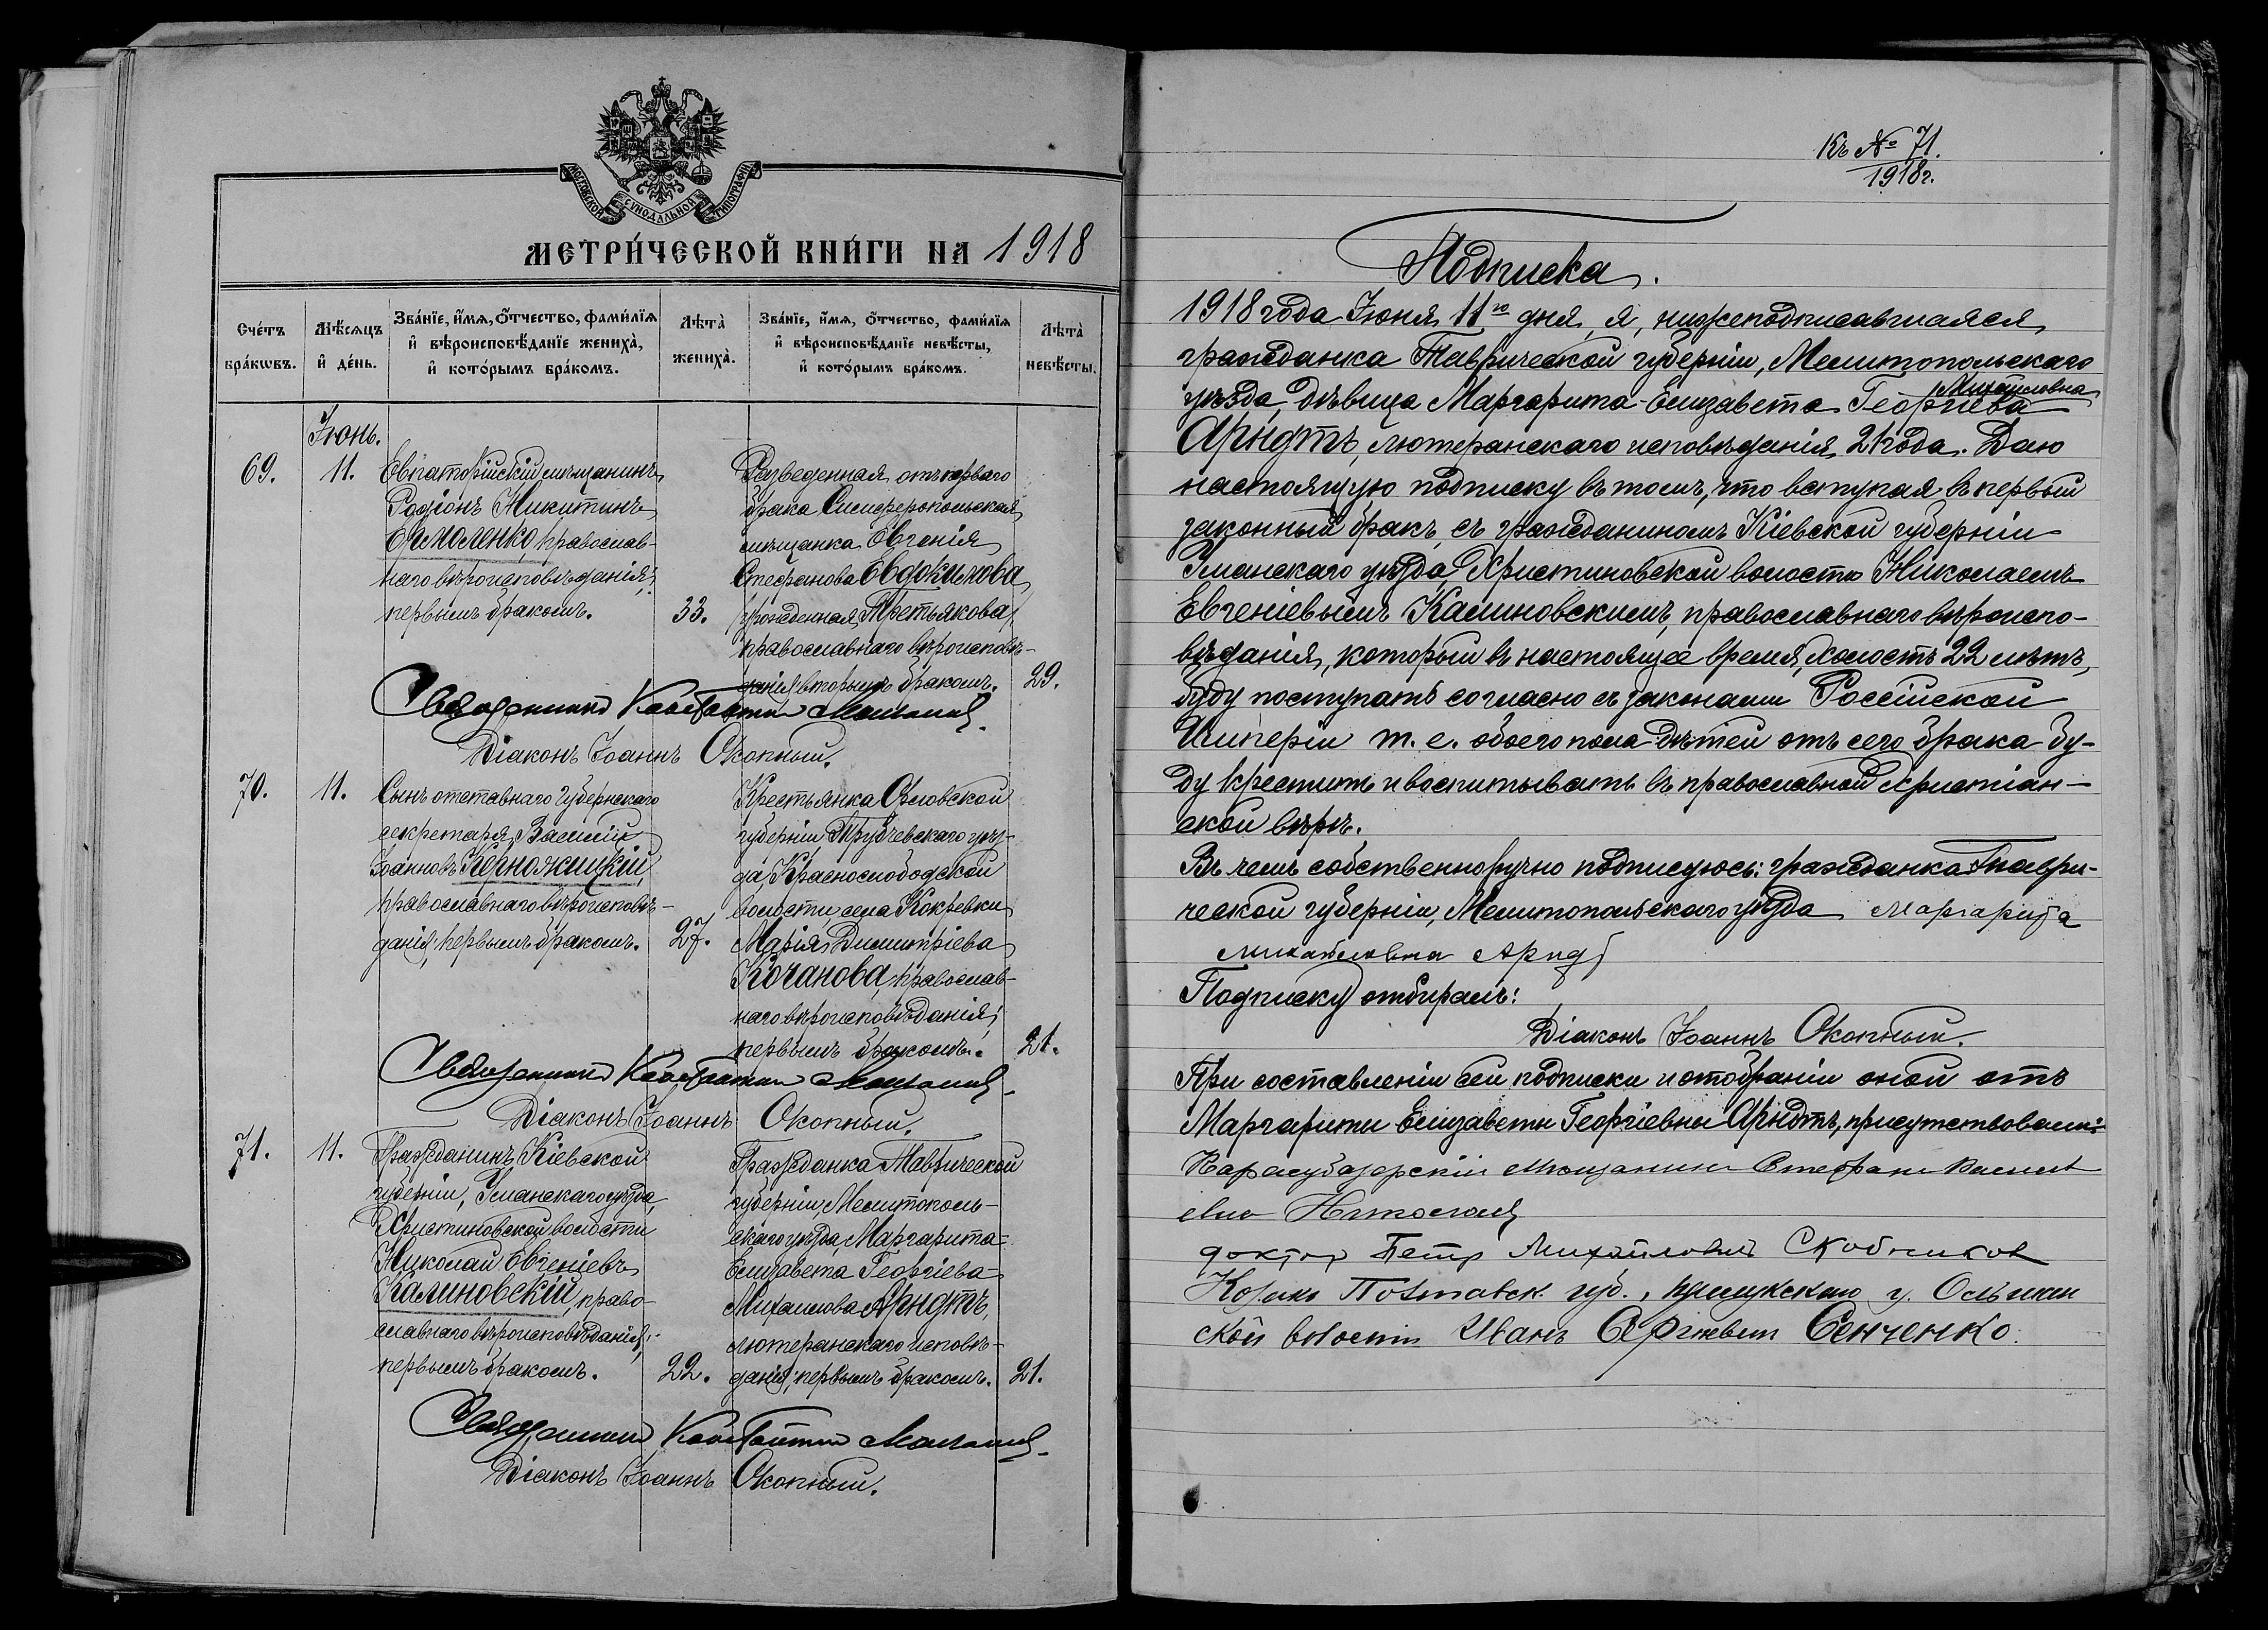 МОСКОВСКОЙ СѴНОДАЛЬНОЙ ТИПОГРАФІИ
МЕТРИ́ЧЕСКОЙ КНИ́ГИ НА 1918
Сче́тъ бра́кѡвъ.
Мѣ́сяцъ и҆ де́нь.
Зва́нїе, и҆́мя, ѻ҆́тчество, фами́лїя и҆ вѣроисповѣ́данїе жениха̀, и҆ кото́рымъ бра́комъ.
Лѣта̀ жениха̀.
Зва́нїе, и҆́мя, ѻ҆́тчество, фами́лїя и҆ вѣроисповѣ́данїе невѣ́сты, и҆ кото́рымъ бра́комъ.
Лѣта̀ невѣ́сты.
Іюнь.
69.
11.
Евпаторійскій мѣщанинъ
Родіонъ Никитинъ
православ-
наго вѣроисповѣданія;
первымъ бракомъ.
33.
Разведенная отъ перваго
брака Симферопольская
мѣщанка Евгенія
Стефанова Евдокимова
/урожденная Третьякова/,
православнаго вѣроисповѣ-
данія, вторымъ бракомъ.
29.
Священникъ Константинъ
Діаконъ Іоаннъ Окопный.
70.
11.
Сынъ отставнаго Губернскаго
секретаря Василій
Іоанновъ
православнаго вѣроисповѣ-
данія, первымъ бракомъ.
27.
Крестьянка Орловской
губерніи Трубчевскаго уѣз-
да, Краснослободской
волости, села Кокревки
Марія Димитріева
Кочанова, православ-
наго вѣроисповѣданія;
первымъ бракомъ.
21.
Священникъ Константинъ
Діаконъ Іоаннъ Окопный.
71.
11.
Гражданинъ Кіевской
губерніи, Уманскаго уѣзда,
Христиновской волости
Николай Евгеніевъ
Калиновскій, право-
славнаго вѣроисповѣданія;
первымъ бракомъ.
22.
Гражданка Таврической
губерніи, Мелитополь-
скаго уѣзда, Маргарита-
Елизавета Георгіева-
Михаилова Арндтъ,
лютеранскаго исповѣ-
данія; первымъ бракомъ.
21.
Священникъ Константинъ
Діаконъ Іоаннъ Окопный.
Къ № 71.
1918 г.
Подписка.
1918 года Іюня 11го дня, я, нижеподписавшаяся
гражданка Таврической губерніи, Мелитопольскаго
Михайловна
уѣзда, дѣвица Маргарита-Елизавета Георгіева
Арндтъ, лютеранскаго исповѣданія, 21 года. Даю
настоящую подписку въ томъ, что вступая въ первый
законный бракъ, съ гражданиномъ Кіевской губерніи
Уманскаго уѣзда, Христиновской волости Николаемъ
Евгеніевымъ Калиновскимъ, православнаго вѣроиспо-
вѣданія, который въ настоящее время холостъ 22 лѣтъ,
буду поступать согласно съ законами Россійской
Имперіи т. е. обоего пола дѣтей отъ сего брака бу-
ду крестить и воспитывать въ православной христіан-
ской вѣрѣ.
Въ чемъ собственноручно подписуюсь: гражданка Таври-
ческой губерніи, Мелитопольскаго уѣзда Маргарита
Михайловна Арндт
Подписку отбиралъ:
Діаконъ Іоаннъ Окопный.
При составленіи сей подписки и отобраніи оной отъ
Маргариты Елизаветы Георгіевны Арндтъ, присутствовали:
Карасубазарскій мѣщанинъ Стефанъ
доктор Петр Михайлович Скобников
Козакъ Полтавск. губ., у.
ской волости Иванъ Сергѣевич Сенченко.